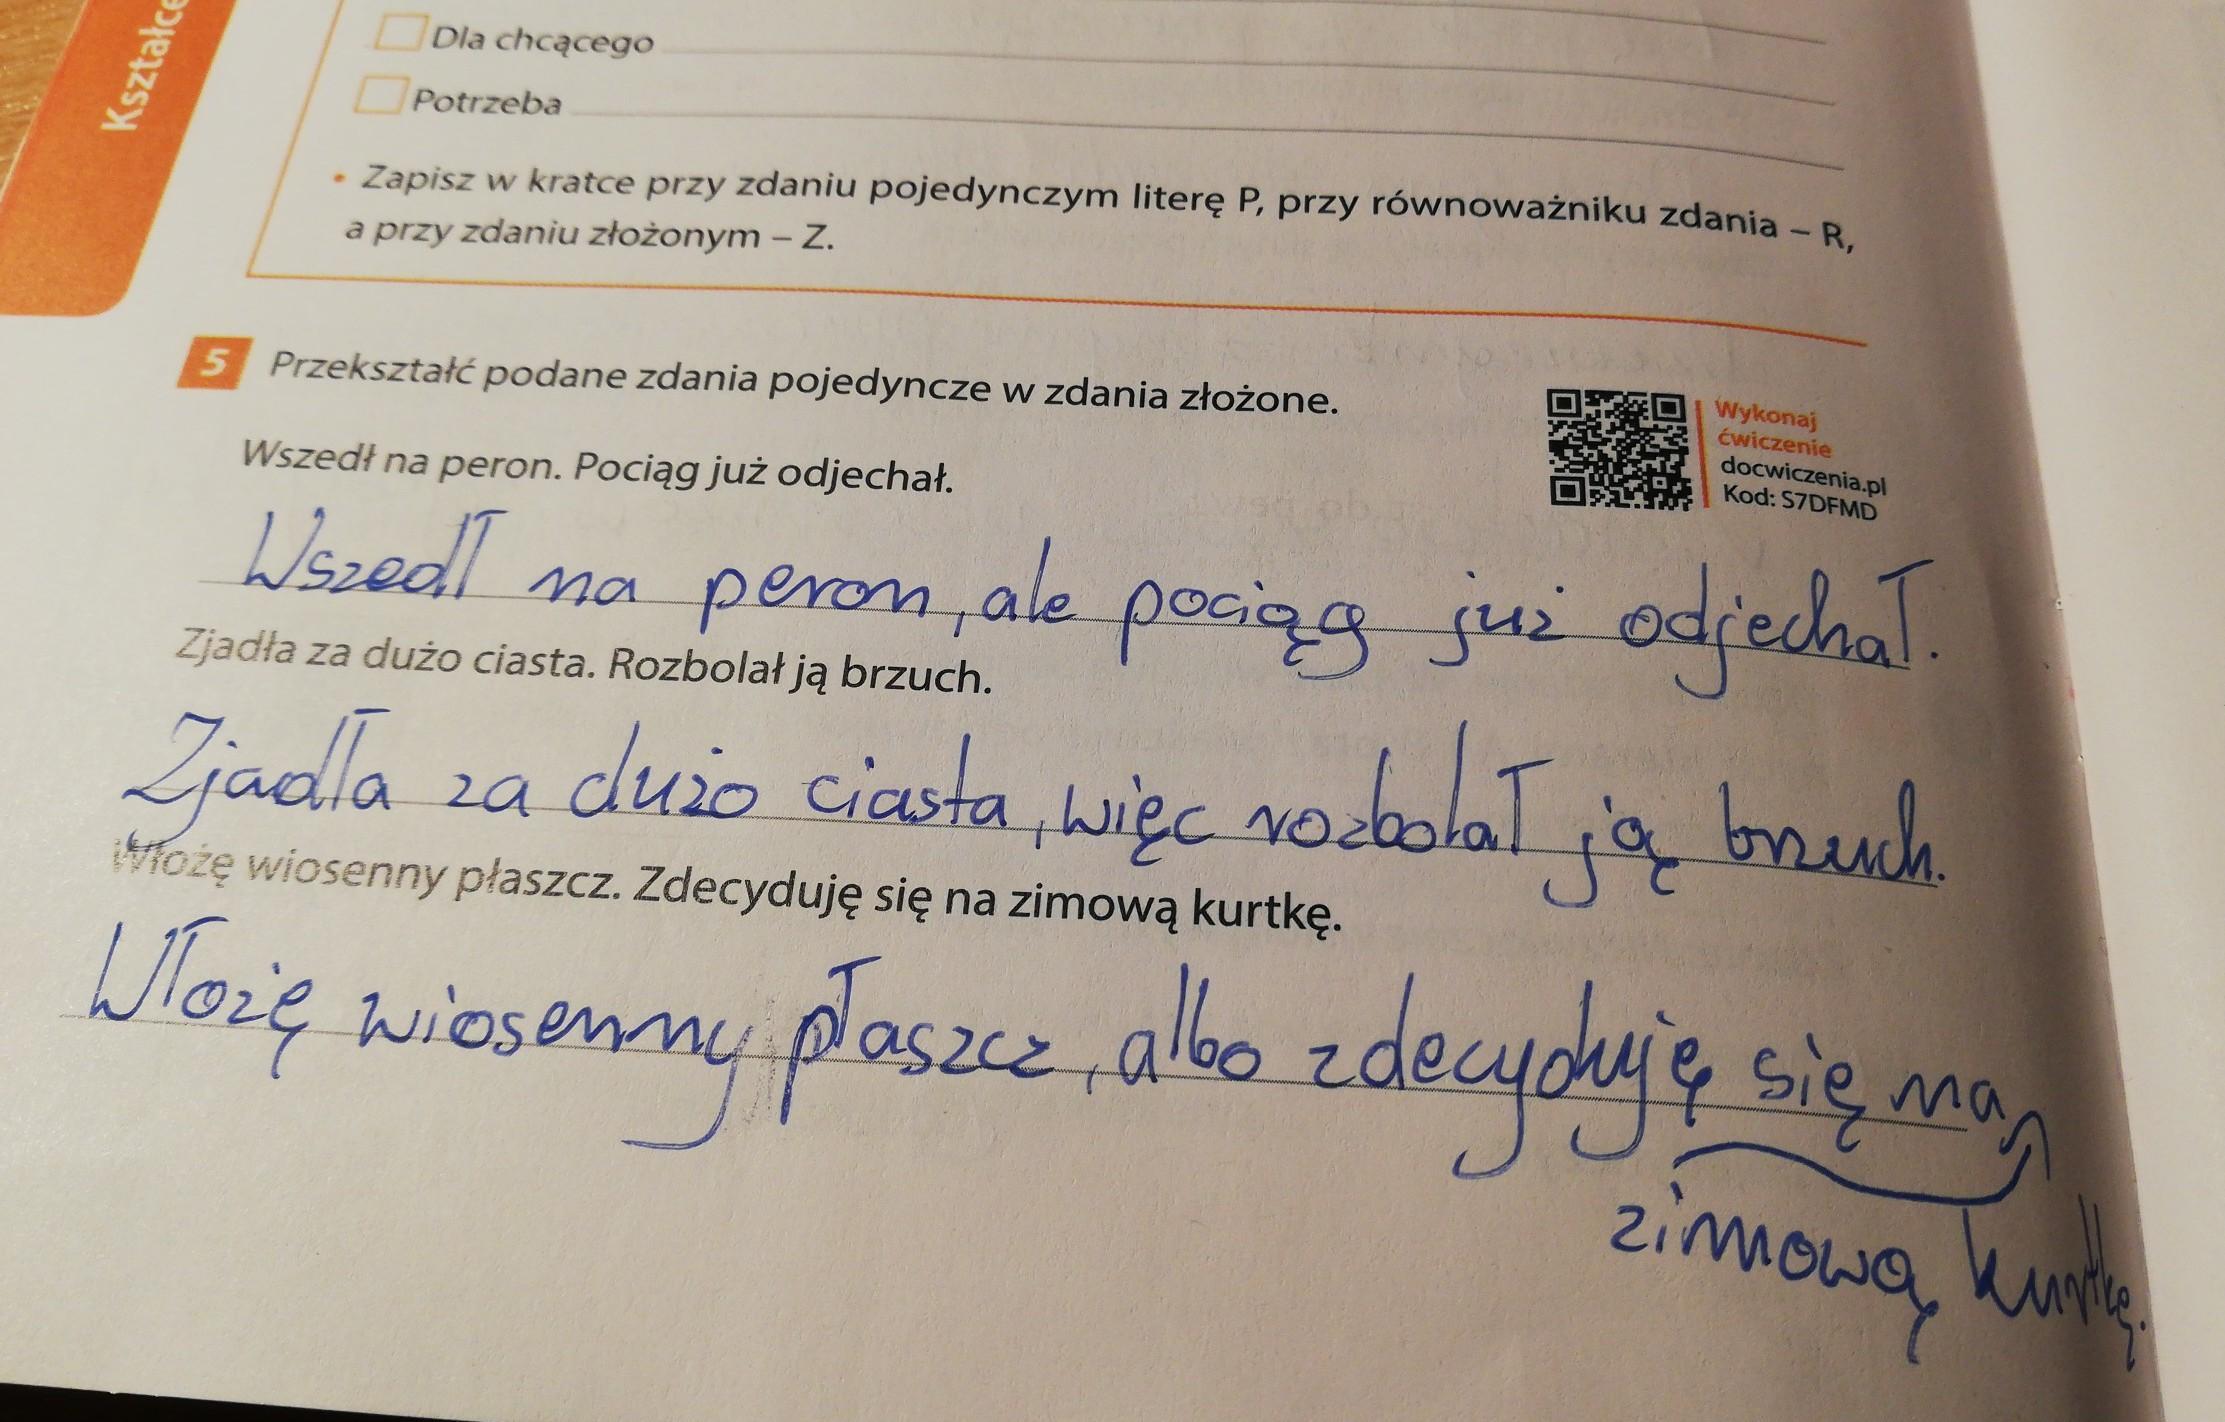 Kształce
Dla chcącego
Potrzeba
• Zapisz w kratce przy zdaniu pojedynczym literę P, przy równoważniku zdania – R,
a przy zdaniu złożonym – Z.
5 Przekształć podane zdania pojedyncze w zdania złożone.
Wykonaj
ćwiczenie
docwiczenia.pl
Kod: S7DFMD
Wszedł na peron. Pociąg już odjechał.
Wszedł na peron, ale pociąg już odjechał.
Zjadła za dużo ciasta. Rozbolał ją brzuch.
Zjadła za dużo ciasta, więc rozbolał ją brzuch.
Włożę wiosenny płaszcz. Zdecyduję się na zimową kurtkę.
Włożę wiosenny płaszcz, albo zdecyduję się na
zimową kurtkę.